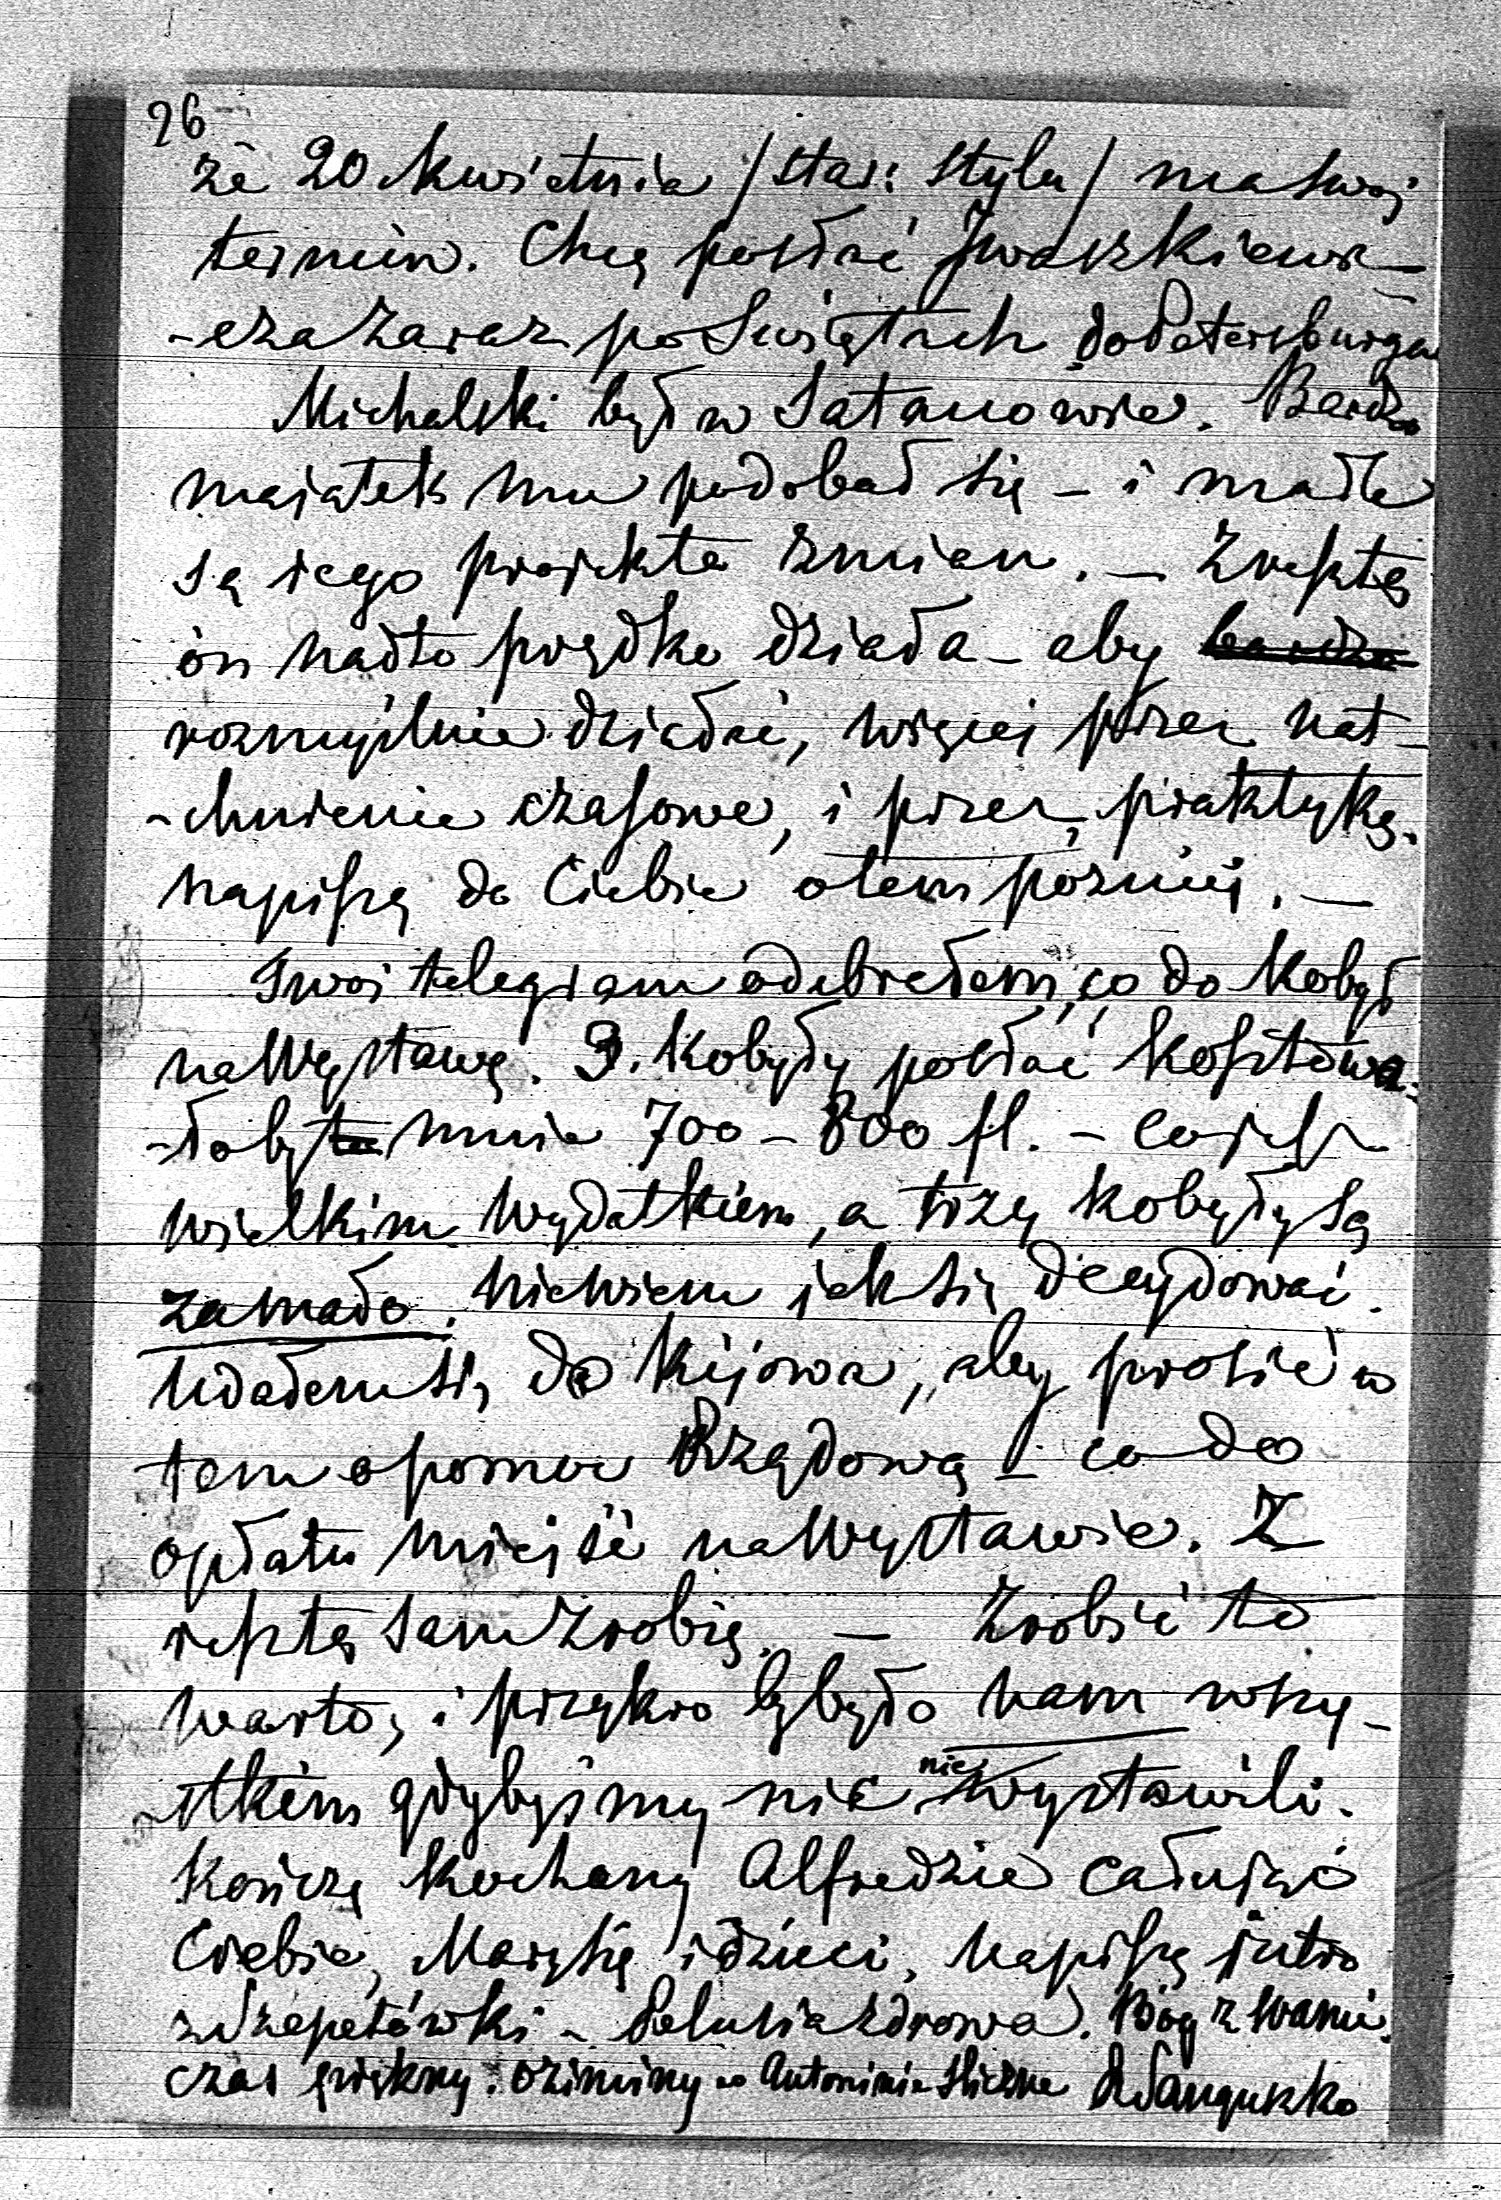 26
że 20 kwietnia /star: stylu/ ma swój
termin. Chcę posłać Iwaszkiewi-
-cza zaraz po Swiętach do Petersburga
Michalski był w Satanowie. Bardzo
majątek mu podobał się – i małe
są iego projekta zmian. – Zresztą
on nadto prędko działa – aby bardzo
rozmyślnie działać, więcej przez nat-
-chnienie czasowe, i przez praktykę.
napiszę do Ciebie o tem pózniéj. –
Twoj telegram odebrałem, co do kobył
na Wystawę. 3. kobyły posłać kosztowa-
-łoby mnie 700 – 800 fl. – co jest
wielkim wydatkiem, a trzy kobyły są
za mało. Nie wiem jak się decydować.
Udałem się do Kijowa, aby prosić w
tem o pomoc Rządową – co do
opłatu miejsc na Wystawie. Z
resztą sam zrobię. – Zrobić to
warto, i przykro by było nam wszy-
-stkim gdybyśmy nic nie wystawili.
Kończę kochany Alfredzie całując
Ciebie, Marysię i dzieci. Napiszę jutro
z Szepetówki – Helusia zdrowa. Bóg z Wami.
czas piękny. oziminy w Antoninie śliczne RSanguszko